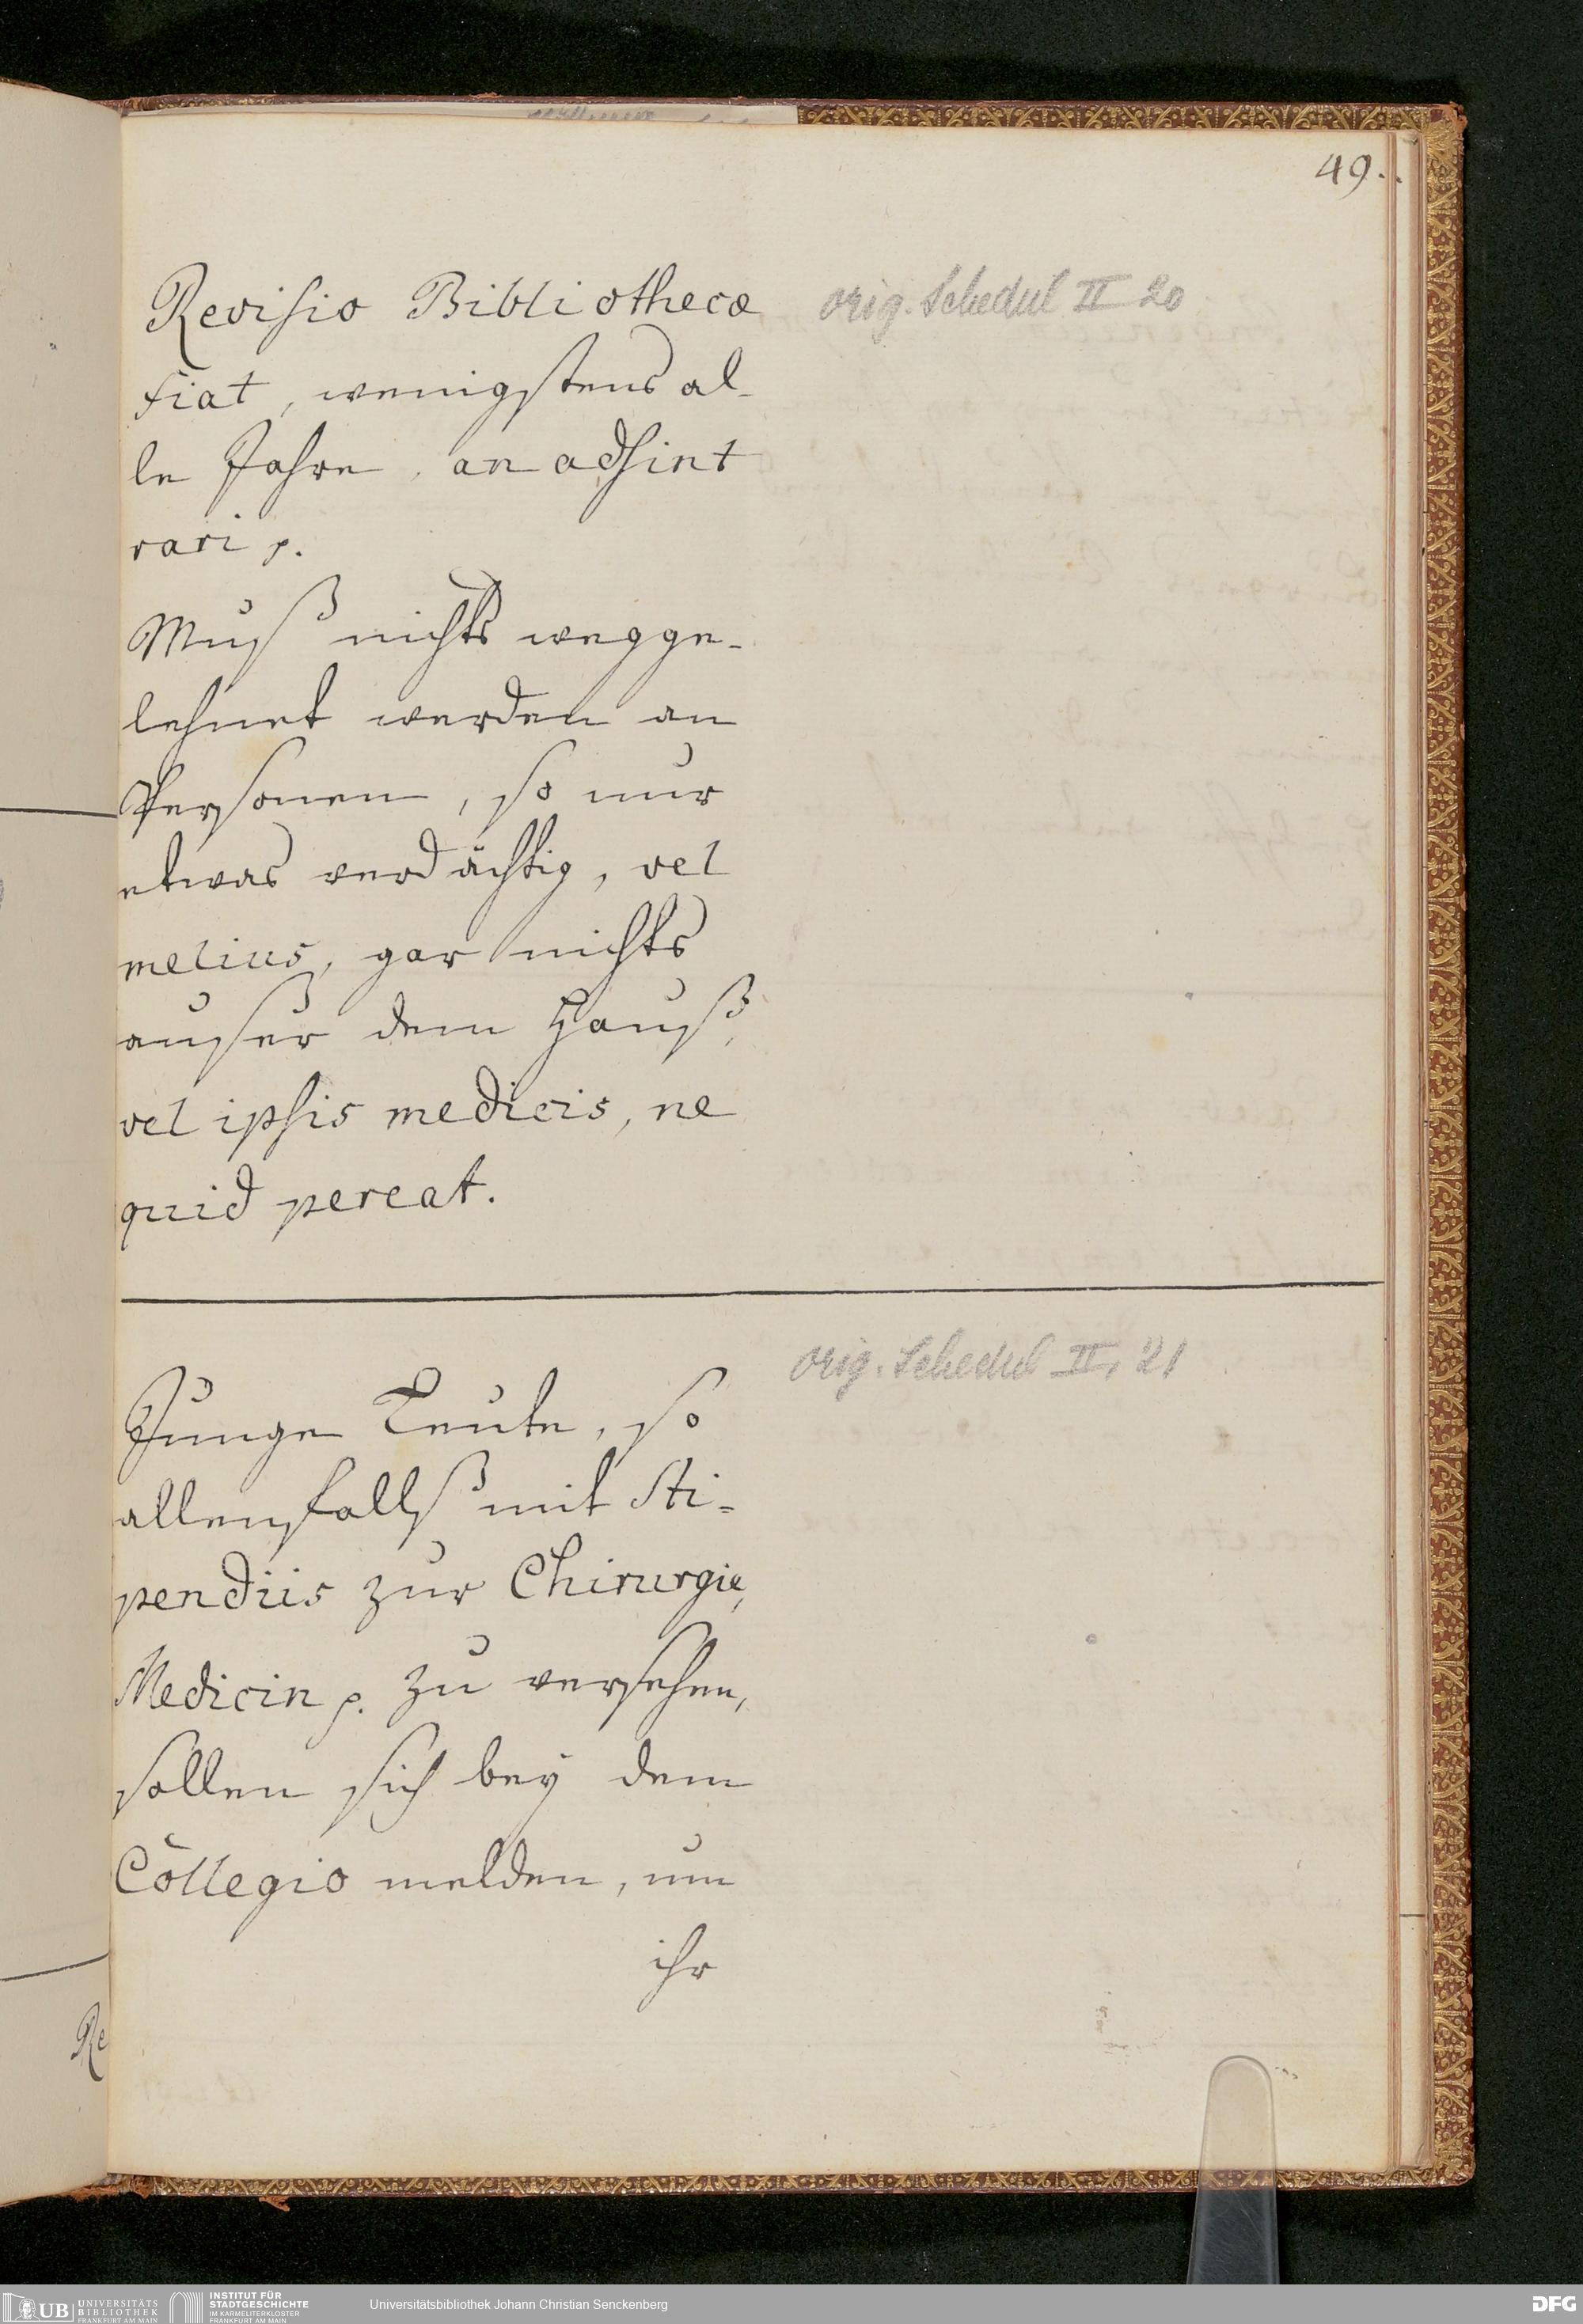 49.
Revisio Bibliothecæ
orig. Schedul II 20
fiat, wenigstens al-
le Jahre, an adsint
rari p.
Muß nichts wegge-
lehnet werden an
Persohnen, so nur
etwas verdächtig, vel
melius, gar nichts
außer dem Hauß,
vel ipsis medicis, ne
quid pereat.
orig. Schedul II, 21
Junge Leute, so
allenfallß mit Sti-
pendiis zur Chirurgie,
Medicin p. zu versehen,
sollen sich bey dem
Collegio melden, um
ihr
Re
UB UNIVERSITÄTS
BIBLIOTHEK
FRANKFURT AM MAIN
INSTITUT FÜR
STADTGESCHICHTE
IM KARMELITERKLOSTER
FRANKFURT AM MAIN
Universitätsbibliothek Johann Christian Senckenberg
DFG